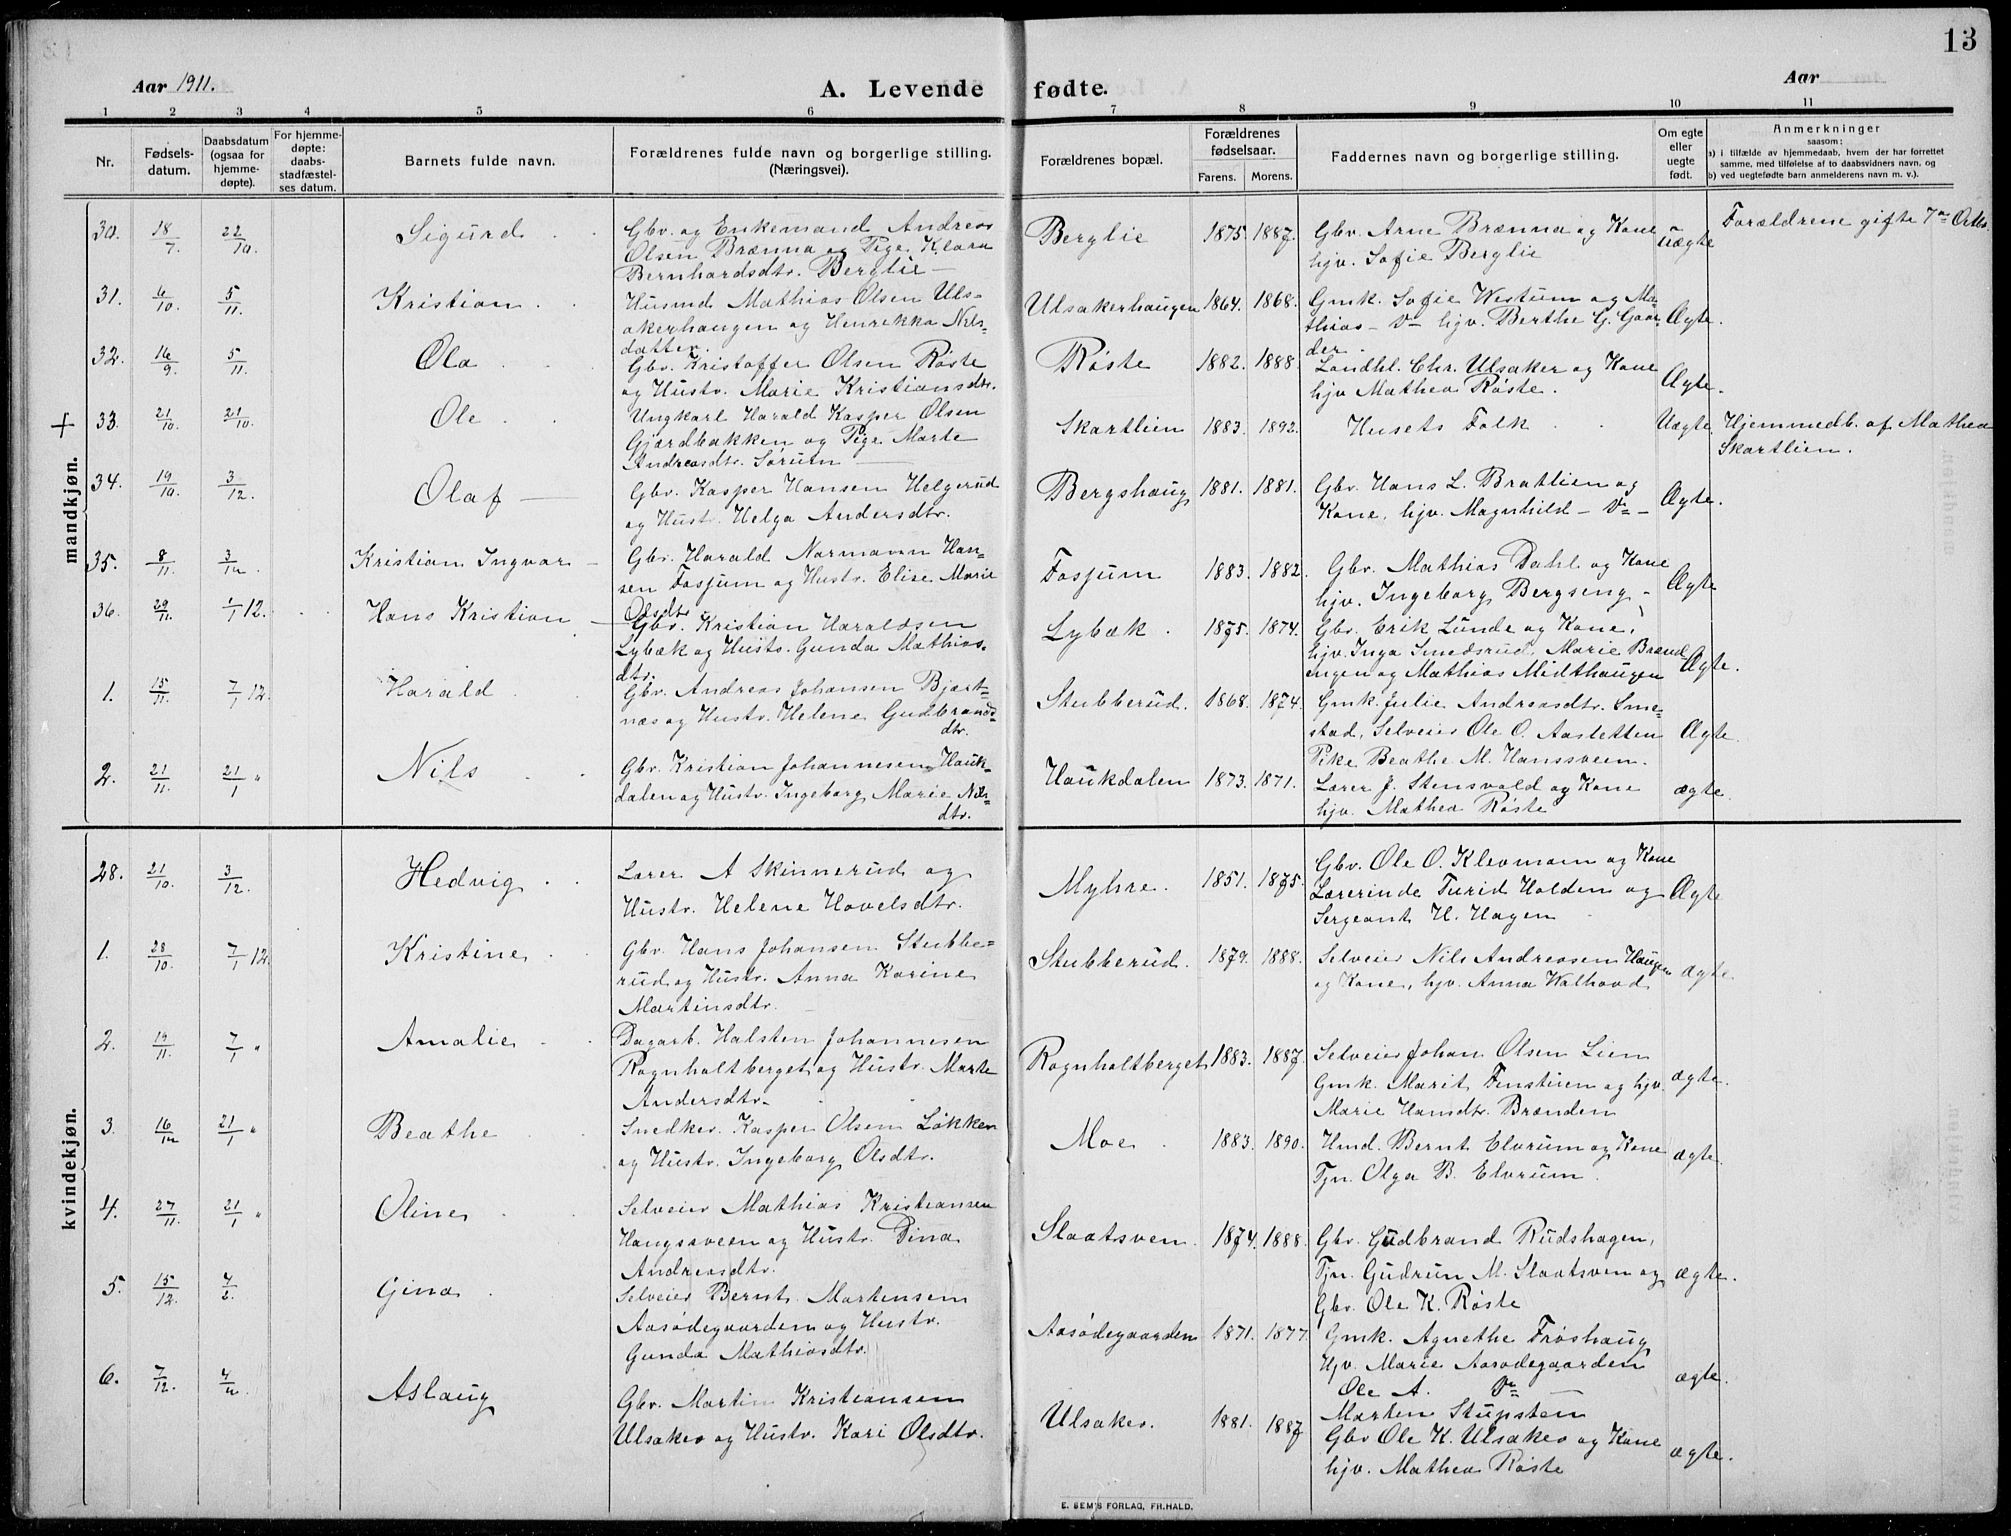 13
Aar 1911.
A. Levende fødte.
Aar
1 2 3 4 5 6 7 8 9 10 11
Nr.
Fødselsdatum.
Daabsdatum (ogsaa for hjemmedøpte).
For hjemmedøpte: daabsstadfæstelses datum.
Barnets fulde navn.
Forældrenes fulde navn og borgerlige stilling. (Næringsvei).
Forældrenes bopæl.
Forældrenes fødselsaar.
Farens. Morens.
Faddernes navn og borgerlige stilling.
Om egte eller uegte født.
Anmerkninger
saasom:
a) i tilfælde av hjemmedaab, hvem der har forrettet samme, med tilføielse af to daabsvidners navn, og
b) ved uegtefødte barn anmelderens navn m. v.).
mandkjøn.
30. 18/7. 22/10. Sigurd
Gbr. og Enkemand Andreas
Olsen Brænna og Pige Klara
Bernhardsdtr. Berglie
Berglie 1875. 1887.
Gbr. Arne Brænna og Kone
hjv. Sofie Berglie
Uægte
Forældrene gifte 7de Oktbr.
31. 6/10. 5/11. Kristian
Husmd Mathias Olsen Uls-
akerhaugen og Henrikka Nils-
datter.
Ulsakerhaugen 1864. 1868.
Gmk. Sofie Westum og Ma-
thias – do – hjv. Berthe G. Gaar-
der.
Ægte.
32. 16/9. 5/11. Ola
Gbr. Kristoffer Olsen Røste
og Hustr. Marie Kristiansdtr.
Røste 1882. 1888.
Landhl. Chr. Ulsaker og Kone
hjv Mathea Røste.
Ægte.
+ 33. 21/10. 21/10. Ole
Ungkarl Harald Kasper Olsen
Gjærdbakken og Pige Marte
Andreasdtr. Sørum
Skartlien 1883. 1892.
Husets Folk
Uægte.
Hjemmedb. af Mathea
Skartlien.
34. 19/10. 3/12. Olaf
Gbr. Kasper Hansen Helgerud
og Hust. Helga Andersdtr.
Bergshaug 1881. 1881.
Gbr. Hans L. Bratlien og
Kone, hjv. Magnhild – do –
Ægte.
35. 8/11. 3/12. Kristian Ingvar
Gbr. Harald Normann Han-
sen Fosjum og Hustr. Elise Marie
Olsdtr
Fosjum 1883. 1882.
Gbr. Mathias Dahl og Kone
hjv. Ingeborg Bergseng
Ægte
36. 29/11. 1/1 12. Hans Kristian
Gbr. Kristian Haraldsen
Lybæk og Hustr. Gunda Mathias-
dtr.
Lybæk. 1875. 1874.
Gbr. Erik Lunde og Kone,
hjv. Inga Smedsrud, Marie Brænd-
engen og Mathias Midthaugen
Ægte.
1. 15/11. 7/1 12. Harald
Gbr. Andreas Johansen Bjørt-
næs og Hustr. Helene Gudbrands-
dtr.
Stubberud. 1868. 1874.
Gmk. Julie Andreasdtr. Sme-
stad, Selveier Ole O. Aasletten
Pike Beathe M. Hanssveen.
Ægte.
2. 21/11. 21/1 " Nils
Gbr. Kristian Johannesen Hauk-
dalen og Hustr. Ingeborg Marie Nils-
dtr.
Haukdalen 1873. 1871.
Lærer J. Stensvold og Kone
hjv. Mathea Røste
ægte.
kvindekjøn.
28. 21/10. 3/12. Hedvig
Lærer A Skinnerud og
Hustr. Helene Hovelsdtr.
Myhre. 1851. 1875.
Gbr. Ole O. Klevmoen og Kone
Lærerinde Turid Holden og
Sergeant H. Hagen
Ægte
1. 28/10. 7/1 12. Kristine
Gbr. Hans Johansen Stubbe-
rud og Hustr. Anna Karine
Martinsdtr.
Stubberud. 1879. 1888.
Selveier Nils Andreasen Haugen
og Kone, hjv. Anna Walhovd
ægte
2. 19/11. 7/1 " Amalie
Dagarb. Halsten Johannesen
Rognholtberget og Hustr. Marte
Andersdtr.
Rognholtberget 1883. 1887
Selveier Johan Olsen Lien
Gmk. Marit Finstuen og hjv.
Marie Hansdtr. Brænden
ægte.
3. 16/12 21/1 " Beathe
Snedker. Kasper Olsen Løkken
og Hustr. Ingeborg Olsdtr.
Moe. 1883. 1890.
Hmd. Bernt Elvrum og Kone
Tjn. Olga B. Elvrum.
ægte.
4. 27/11. 21/1 " Oline
Selveier Mathias Kristiansen
Haugssveen og Hustr. Dina
Andreasdtr.
Slaatsven. 1874. 1888.
Gbr. Gudbrand Rudshagen,
Tjn. Gudrun M. Slaatsven og
Gbr. Ole K. Røste
ægte.
5. 15/12. 4/2. Gina
Selveier Bernt Martensen
Aasødegaarden og Hustr.
Gunda Mathiasdtr.
Aasødegaarden 1871. 1877.
Gmk. Agnethe Frøshaug
Hjv. Marie Aasødegaarden
Ole A. do
Marten Stupsten
ægte.
6. 7/12. Aslaug
Gbr. Martin Kristiansen
Ulsaker og Hustr. Kari Olsdtr.
Ulsaker. 1881. 1887
Gbr Ole K. Ulsaker og Kone
hjv. Mathea Røste
ægte.
E. SEM'S FORLAG, FR.HALD.